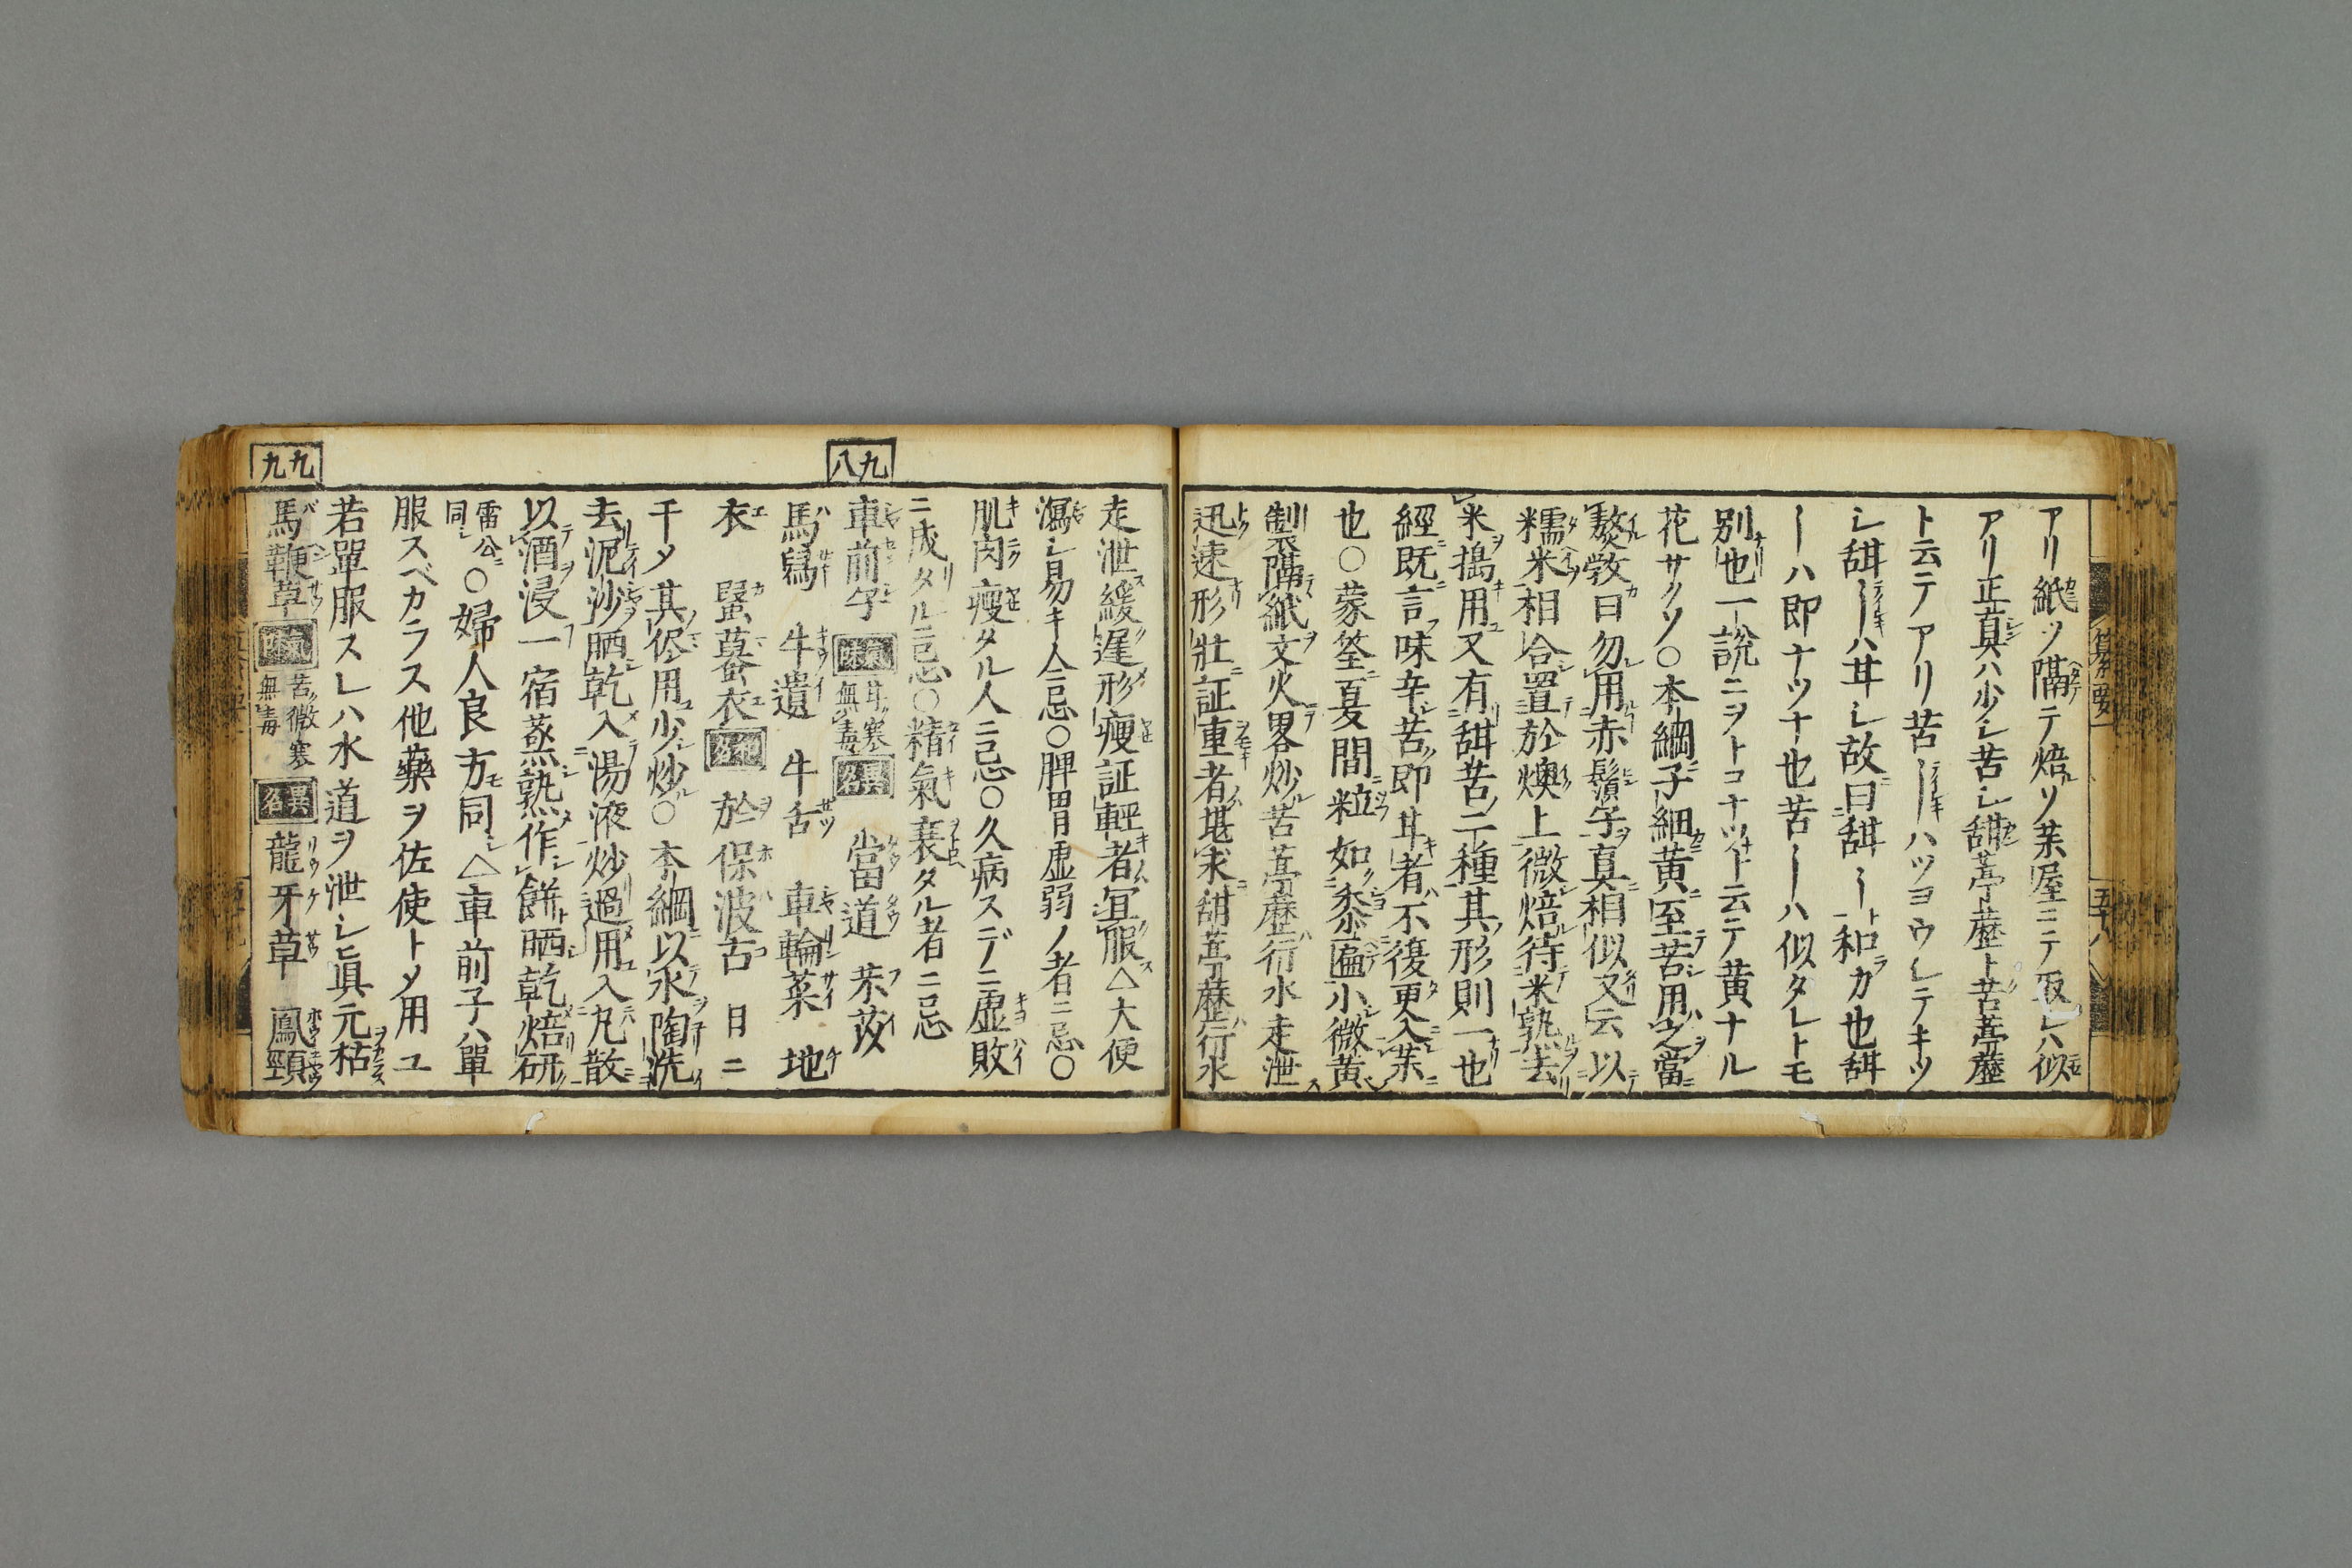 アリ紙ヲ隔テ焙ソ茶屋ニテ
アリ正真ハ少シ苦シ甜葶藶ト苦葶藶
ト云テアリ苦ーハツヨウシテキツ
シ甜ーハ甘シ故曰甜ート和カ也甜
ーハ即ナツナ也苦ーハ似タレトモ
別也一説ニヲトコナツナト云テ黄ナル
花サクソ〇本綱子細黄至苦用之當
熬斆曰勿用赤鬚子真相似又云以
糯米相合置於燠上微焙待米熟去
米搗用又有甜苦二種其形則一也
經既言味辛苦即甘者不復更入藥
也〇蒙筌夏間粒如黍匾小微黄
製隔紙文火畧炒苦葶藶行水走泄
迅速形壯証重者堪求甜葶藶行水
走泄緩遲形瘦証輕者宜服△大便
瀉シ易キ人忌〇脾胃虚弱ノ者ニ忌〇
肌肉瘦タル人ニ忌〇久病スデニ虚敗
ニ成タルニ忌〇精氣衰タル者ニ忌
九八
車前子 氣味 甘寒無毒 異名 當道 芣苡
馬舄 牛遺 牛舌 車輪菜 地
衣 蝦蟇衣 和名 於保波古 日ニ
干メ其侭用少炒〇本綱以水陶洗
去泥沙晒乾入湯液炒過用入丸散
以酒浸一宿蒸熟作餅晒乾焙研
雷公同〇婦人良方同△車前子ハ單
服スベカラス他藥ヲ佐使トメ用ユ
若單服スレハ水道ヲ泄シ眞元枯
九九
馬鞭草 氣味 苦微寒無毒 異名 龍牙草 鳳頸